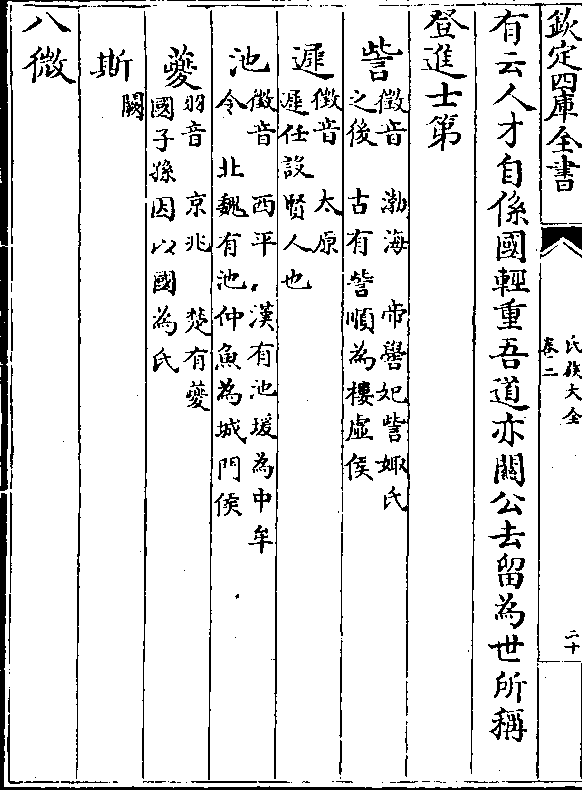 欽定四庫全書
氏族大全
卷二
二十
有云人才自係國輕重吾道亦關公去留為世所稱
登進士第
訾
徵音 渤海 帝嚳妃訾娵氏
之後 古有訾順為樓虛侯
遲
徵音 太原
遲任設賢人也
池
徵音 西平 漢有池瑗為中牟
令 北魏有池仲魚為城門侯
夔
羽音 京兆 楚有夔
國子孫因以國為氏
斯
闕
八微